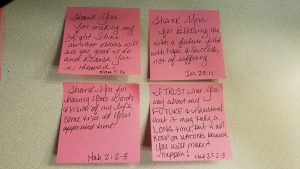 Thank You
for making my
Light Shine
so what others will
see the good I do
and Praise You
in Heaven!
Thank You
for Blessing me
with a future filled
with hope & Success,
not of suffering
Jer 29:11
Thank You for
having Your Words
& vision of my life
come true at Your
appointed time!
Hab 2:2-3
I TRUST what You
say about my
FUTURE understand
that it may take a
LONG time, but I will
KEEP on WAITING because
You will make it
happen!
Hab 2:2-3